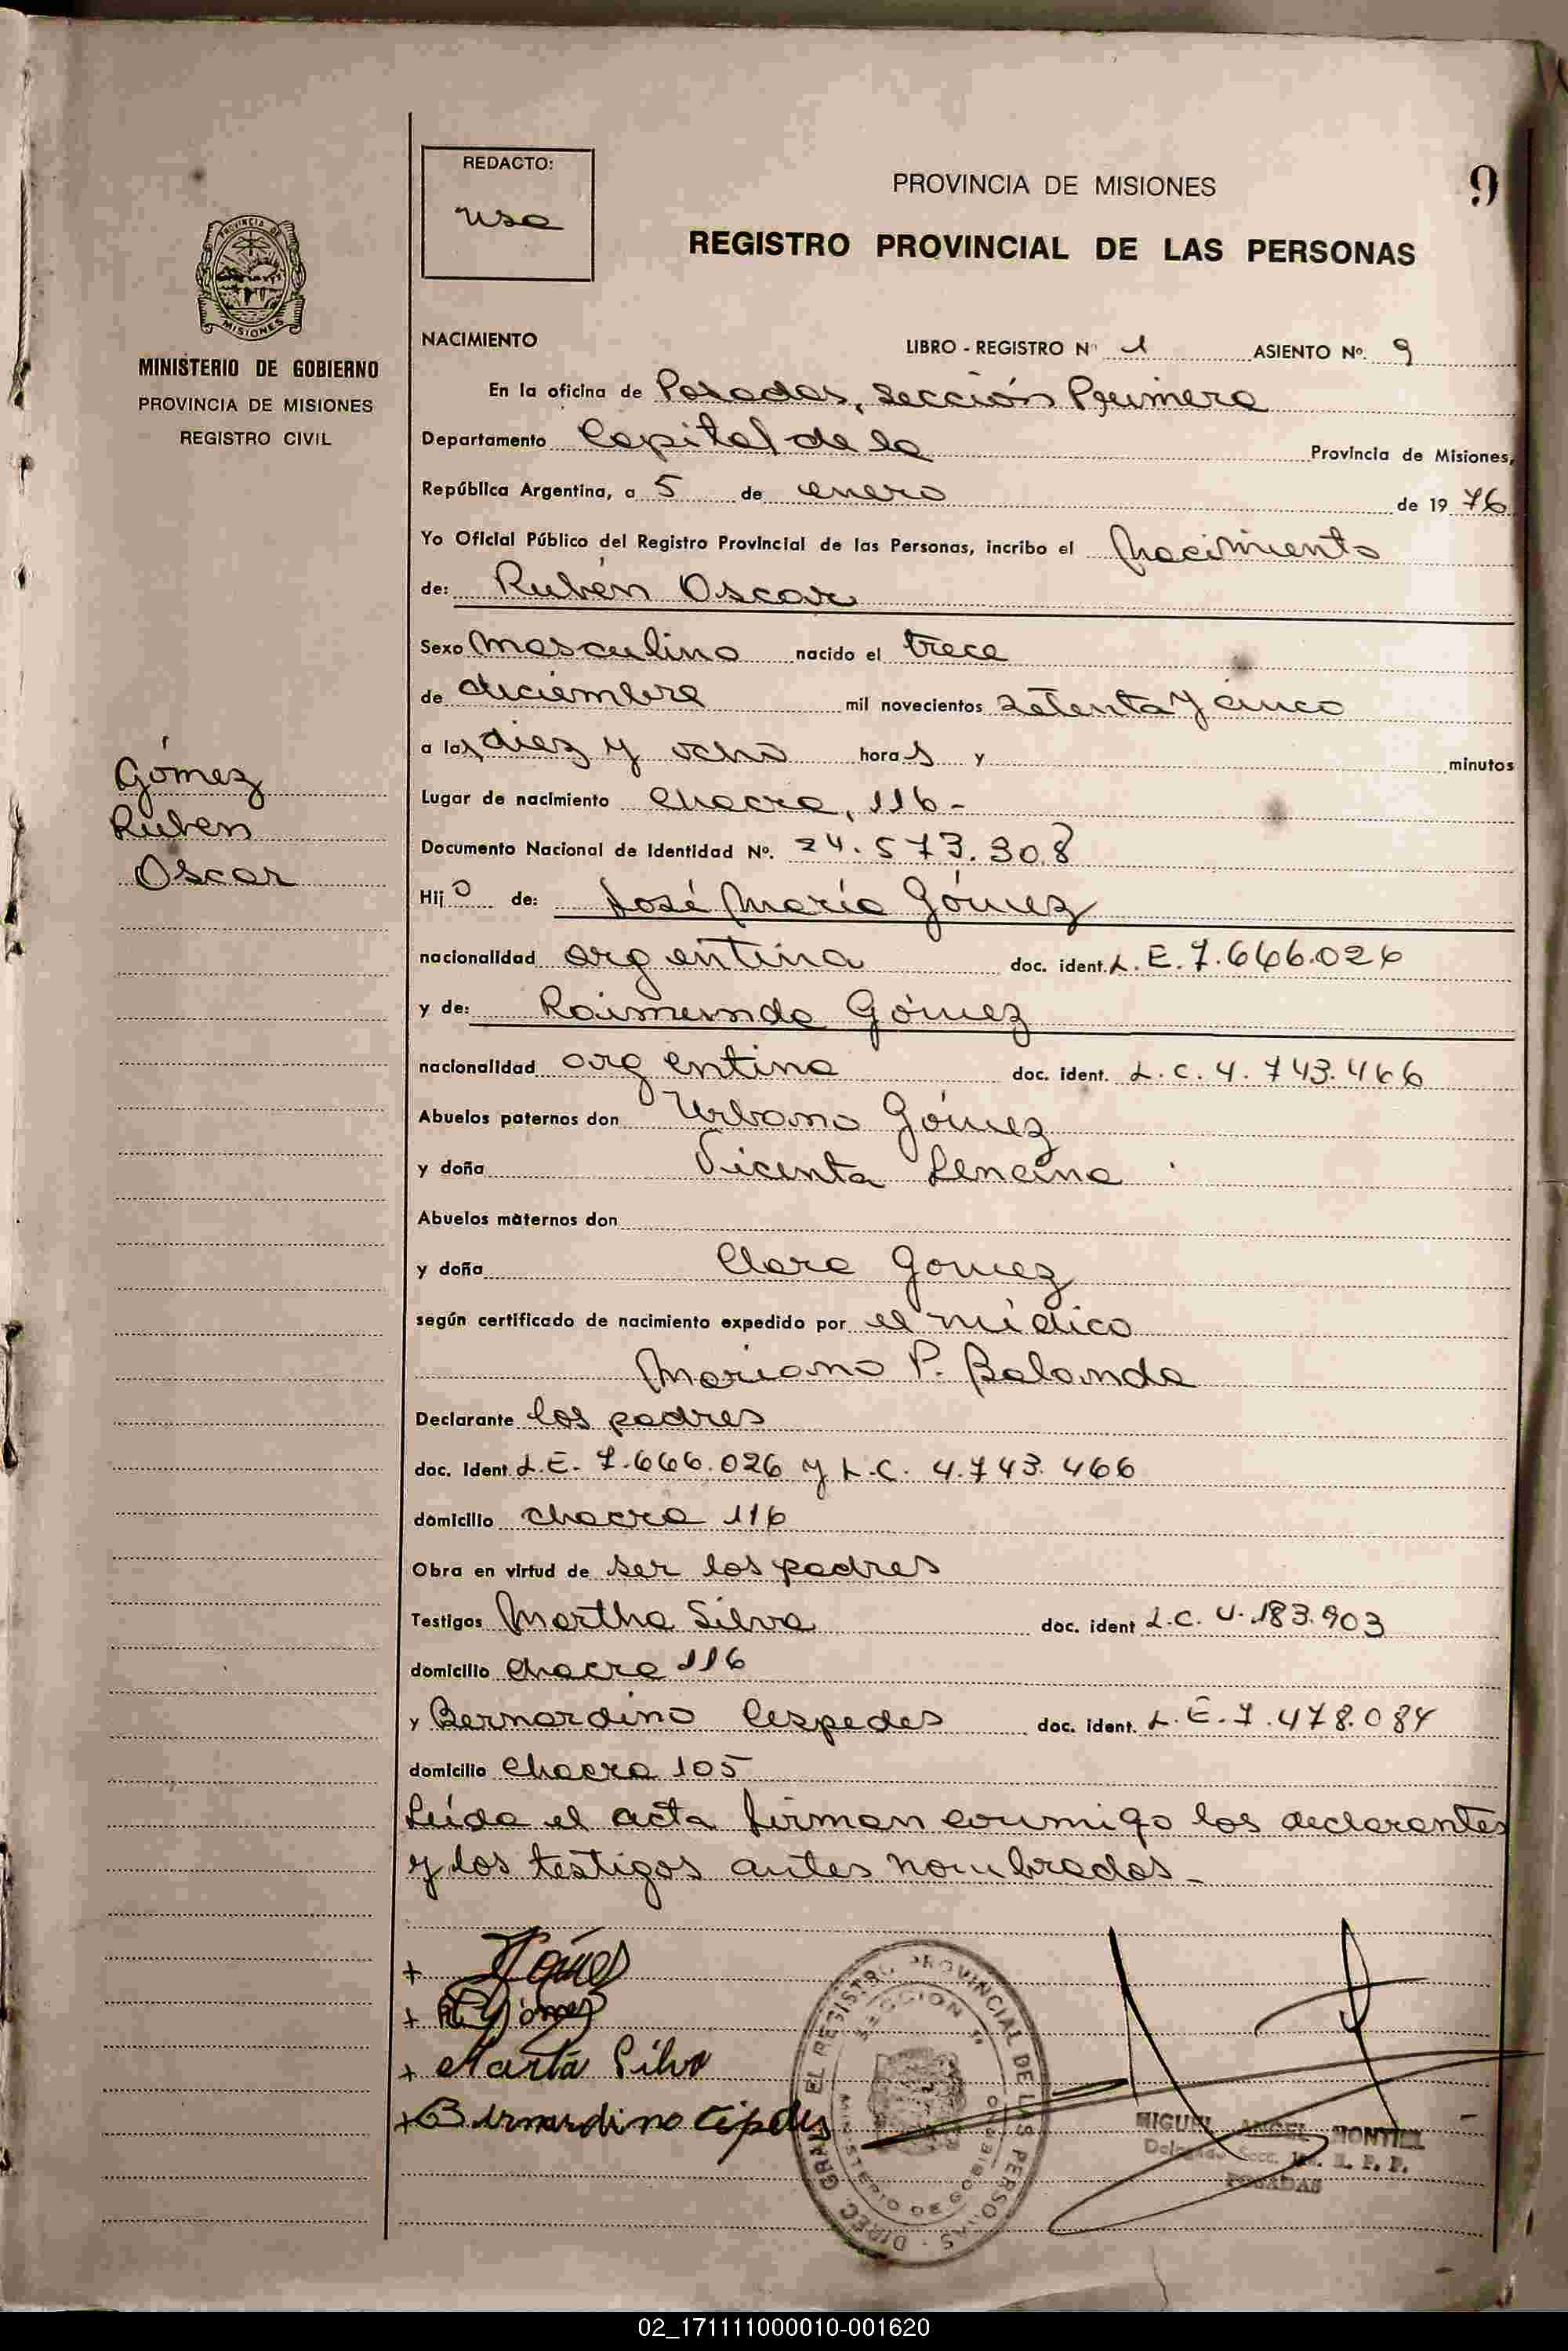 REDACTO:
PROVINCIA DE MISIONES
9
REGISTRO PROVINCIAL DE LAS PERSONAS
PROVINCIA DE
MISIONES
MINISTERIO DE GOBIERNO
PROVINCIA DE MISIONES
REGISTRO CIVIL
NACIMIENTO LIBRO - REGISTRO Nº 1 ASIENTO Nº. 9
En la oficina de Posadas, Sección Primera
Departamento Capital de la Provincia de Misiones,
República Argentina, a 5 de enero de 1976
Yo Oficial Público del Registro Provincial de las Personas, incribo el Nacimiento
de: Rubén Oscar
Sexo Masculino nacido el trece
de diciembre mil novecientos setenta y cinco
a las diez y ocho horas y minutos
Gómez
Rubén
Oscar
Lugar de nacimiento Chacra, 116-
Documento Nacional de Identidad Nº. 24.573.308
Hijo de: José María Gómez
nacionalidad argentina doc. ident. L.E. 7.666.026
y de: Raimunda Gómez
nacionalidad argentina doc. ident. L.C. 4.743.466
Abuelos paternos don Urbano Gómez
y doña Vicenta Lencina
Abuelos maternos don
y doña Clara Gomez
según certificado de nacimiento expedido por el médico
Mariano P. Balanda
Declarante los padres
doc. Ident L.E. 7.666.026 y L.C. 4.743.466
domicilio chacra 116
Obra en virtud de ser los padres
Testigos Martha Silva doc. ident L.C. 4.183.903
domicilio chacra 116
y Bernardino Cespedes doc. ident. L.E. 7.478.084
domicilio Chacra 105
Leída el acta firman conmigo los declarantes
y los testigos antes nombrados.-
+ Gómez
+ R Gómez
+ Marta Silva
+ Bernardino Cespedes
DIREC. GRAL. EL REGISTRO PROVINCIAL DE LAS PERSONAS
SECCION 1ª
MINISTERIO DE GOBIERNO
MIGUEL ANGEL MONTIEL
Delegado Secc. 1ra. R. P. P.
POSADAS
02_171111000010-001620